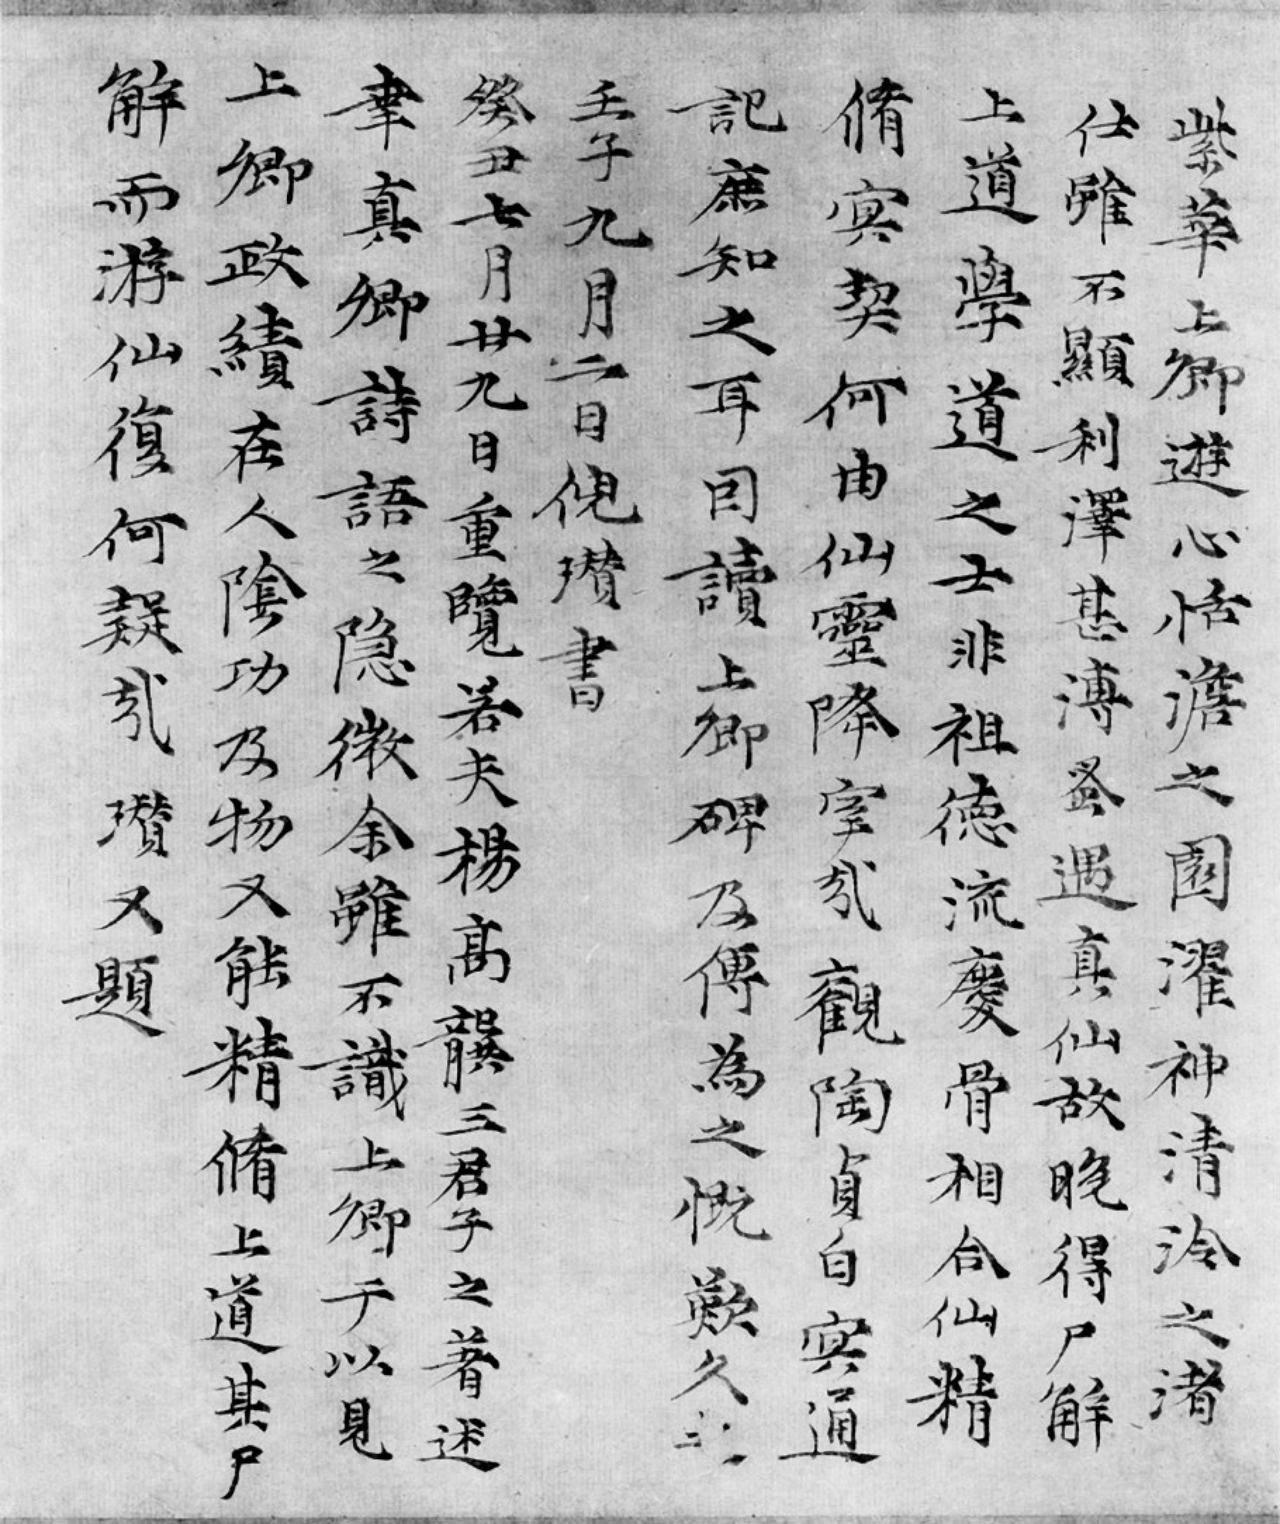 紫華上卿遊心恬澹之園濯神清泠之渚
仕雖不顯利澤甚溥蚤遇真仙故晚得尸解
上道學道之士非祖德流慶骨相合仙精
脩冥契何由仙靈降室哉觀陶貞白冥通
記庶知之耳因讀上卿碑及傳為之慨歎久之
壬子九月二日倪瓚書
癸丑七月廿九日重覽若夫楊高龔三君子之著述
聿真卿詩語之隱微余雖不識上卿于以見
上卿政績在人陰功及物又能精脩上道其尸
解而游仙復何疑哉瓚又題